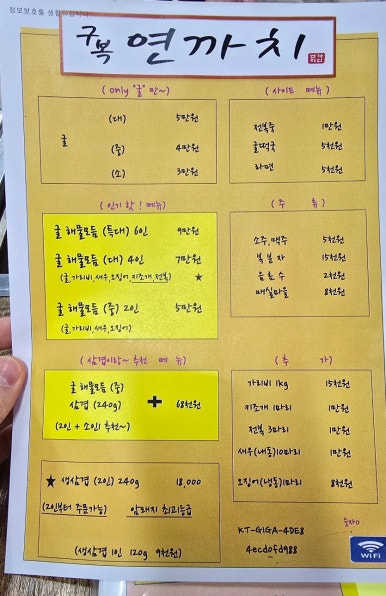 정보보호를 생활화합시다
구복 연까치
( only "굴" 만~)
굴
(대) 5만원
(중) 4만원
(소) 3만원
( 사이드 메뉴 )
전복죽 1만원
굴떡국 5천원
라면 5천원
( 인기 핫! 메뉴)
굴 해물모듬 (특대) 6인 9만원
굴 해물모듬 (대) 4인 7만원
(굴, 가리비, 새우, 오징어, 키조개, 전복) ★
굴 해물모듬 (중) 2인 5만원
(굴, 가리비, 새우, 오징어)
( 주 류 )
소주, 맥주 5천원
복분자 15천원
음료수 2천원
매실마을 8천원
( 삼겹이랑~ 추천 메뉴 )
굴 해물모듬 (중)
+
삼겹 (240g) 68천원
(2인 + 소인1 추천~)
( 추 가 )
가리비 1kg 15천원
키조개 1마리 1만원
전복 3마리 1만원
새우(냉동)10마리 1만원
오징어(냉동)1마리 8천원
★ 생삼겹 (2인) 240g 18,000
(2인부터 주문가능) 암돼지 최고등급
(생삼겹 1인 120g 9천원)
숫자0
KT-GIGA-4DE8
4ecd0fd988
WiFi